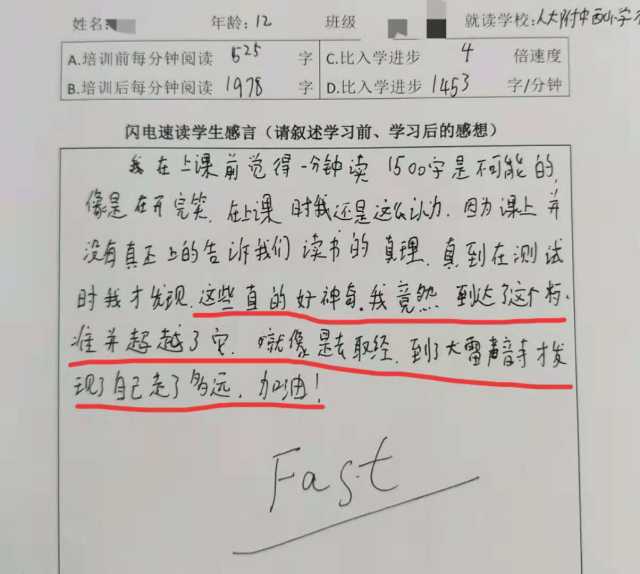 姓名: 年龄: 12 班级 就读学校: 人大附中西山小学
A.培训前每分钟阅读 525 字 C.比入学进步 4 倍速度
B.培训后每分钟阅读 1978 字 D.比入学进步 1453 字/分钟
闪电速读学生感言（请叙述学习前、学习后的感想）
我在上课前觉得一分钟读1500字是不可能的,
像是在开完笑。在上课时我还是这么认为。因为课上并
没有真正上的告诉我们读书的真理。真到在测试
时我才发现。这些真的好神奇。我竟然到达了这个标
准并超越了它。就像是去取经。到了大雷声音寺才发
现了自己走了多远。加油！
Fast